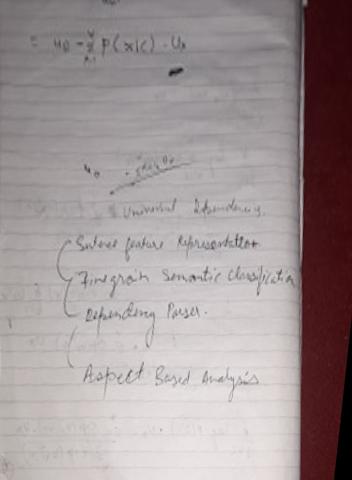 = u0 - Σ P(x|c) · Ux
u0
Universal Dependency.
feature Representation
Finegrain Semantic Classification
Dependency Parser.
Aspect Based Analysis